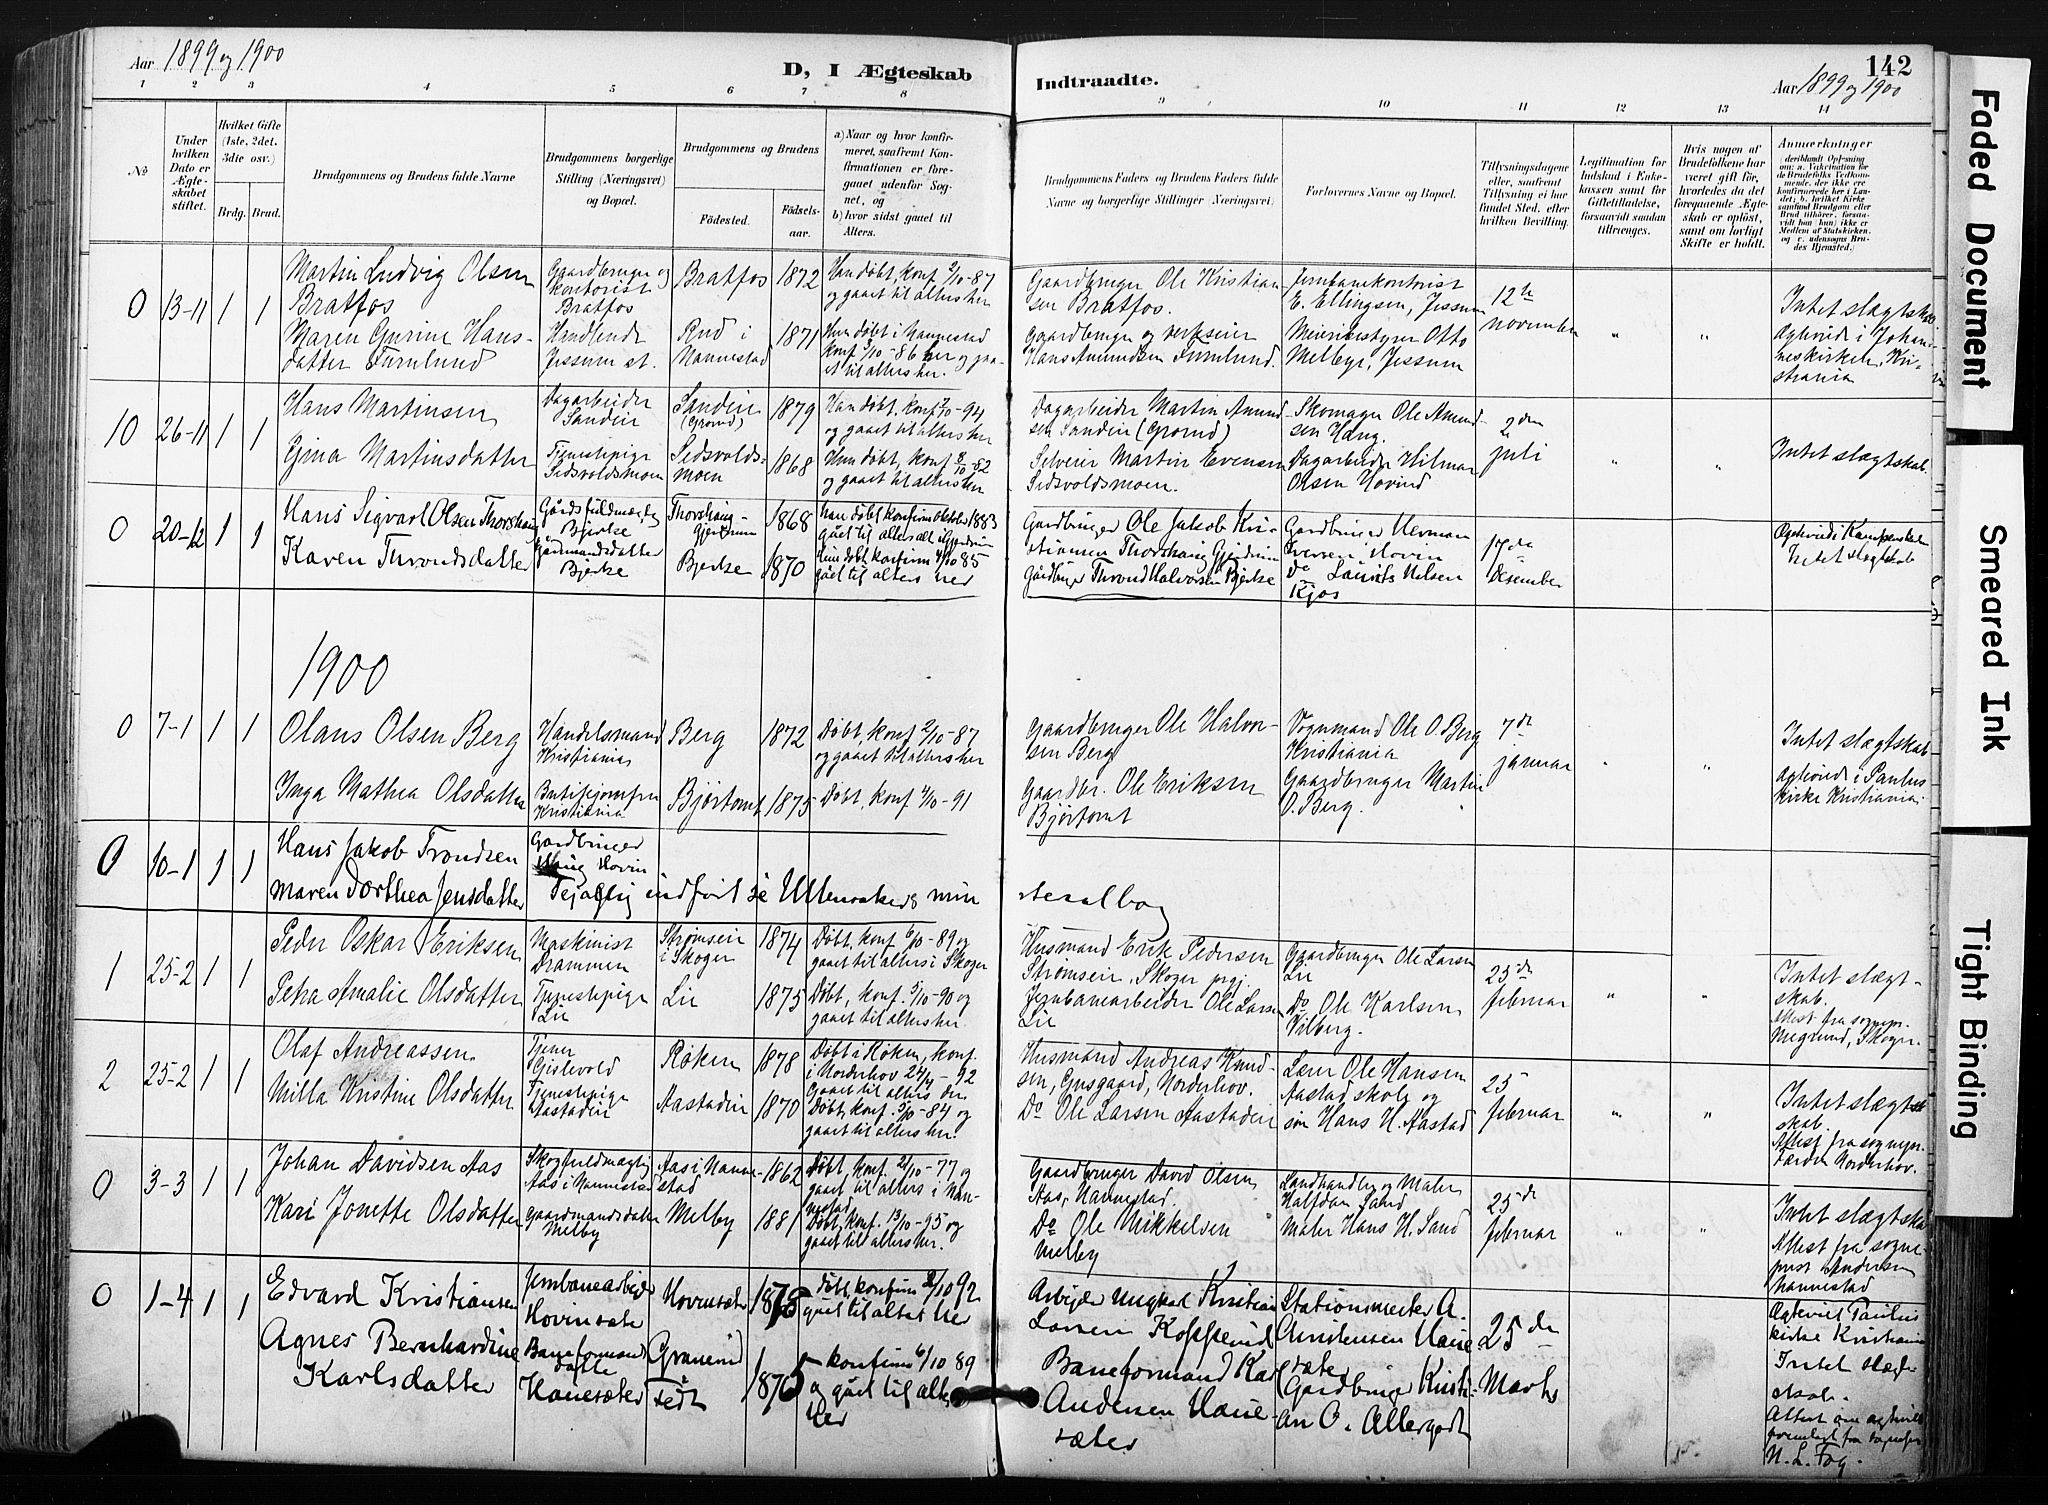 Aar 1899 og 1900
D, I Ægteskab
Indtraadte.
142
Aar 1899 og 1900
1 2 3 4 5 6 7 8 9 10 11 12 13 14
No
Under hvilken Dato er Ægteskabet stiftet.
Hvilket Gifte (1ste, 2det, 3die osv.)
Brdg. Brud.
Brudgommens og Brudens fulde Navne
Brudgommens borgerlige Stilling (Næringsvei) og Bopæl.
Brudgommens og Brudens
Fødested.
Fødselsaar.
a) Naar og hvor konfirmeret, saafremt Konfirmationen er foregaaet udenfor Sognet, og
b) hvor sidst gaaet til Alters.
Brudgommens Faders og Brudens Faders fulde Navne og borgerlige Stillinger (Næringsvei)
Forlovernes Navne og Bopæl.
Tillysningsdagene eller, saafremt Tillysning ei har fundet Sted, efter hvilken Bevilling.
Legitimation for Indskud i Enkekassen samt for Giftetilladelse, forsaavidt saadan tiltrænges.
Hvis nogen af Brudefolkene har været gift før, hvorledes da det foregaaende Ægteskab er opløst, samt om lovligt Skifte er holdt.
Anmærkninger
0 13-11 1 1
Martin Ludvig Olsen Bratfos
Gaardbruger og kontorist Bratfos
Bratfos 1872
Han døbt, konf. 2/10-87 og gaaet til alters her
Gaardbruger Ole Kristiansen Bratfos.
Jernbanekontorist E. Ellingsen, Jessum
12te november
Intet slægtskab.
Maren Gurine Hansdatter Furulund
Jessum st.
Rud i Nannestad 1871
Hun døbt i Nannestad konf. 3/10-86 her og gaaet til alters her.
Gaardbruger og verkseier Hans Amundsen Furulund.
Meieribestyrer Otto Melby, Jessum
Agtevied i Johanneskirken, Kristiania
10 26-11 1 1
Hans Martinsen
Dagarbeider Sandeie
Sandeie (Grorud) 1879
Han døbt, konf. 7/10-94 og gaaet til alters her
Dagarbeider Martin Amundsen Sandeie (Grorud)
Skomager Ole Amundsen Haug.
2den juli
Intet slægtskab.
Gina Martinsdatter
Tjenestepige Eidsvoldsmoen
Eidsvoldsmoen 1868
Hun døbt, konf. 8/10-82 og gaaet til alters her
Selveier Martin Evensen Eidsvoldsmoen.
Dagarbeider Hilmar Olsen Hovind
0 20-12 1 1
Hans Sigvart Olsen Thorshaug
Gårdsfuldmægtig Bjerke
Thorshaug Gjerdrum 1868
Gardbruger Ole Jakob Kristiansen Thorshaug Gjerdrum
Gardbruger Herman Iversen Hoven
17de Desember
Intet slægtskab
Karen Throndsdatter
Gårdmandsdatter Bjerke
Bjerke 1870
Hun døbt konfirm 4/10 85 gået til alters her
Gårdbruger Thrond Halvorsen Bjerke
Do Laurits Nilsen Kjos
1900
0 7-1 1 1
Olaus Olsen Berg
Handelsmand Kristiania
Berg 1872
Døbt, konf. 2/10-87 og gaaet til alters her
Gaardbruger Ole Halvorsen Berg
Vognmand Ole O. Berg Kristiania
7de januar
Intet slægtskab
Inga Mathea Olsdatter
Butikjomfru Kristiania
Bjørtomt 1875
Døbt, konf. 4/10-91
Gaardbr. Ole Eriksen Bjørtomt
Gaardbruger Martin O. Berg.
Agtevied i Paulus kirke Kristiania
0 10-1 1 1
Hans Jakob Trondsen
Gardbruger Haug Hovin
Maren Dorthea Jensdatter
indført i Ullensakers ministerialbog
1 25-2 1 1
Peder Oskar Eriksen
Maskinist Drammen
Strømseie i Skoger 1874
Døbt, konf. 6/10-89 og gaaet til alters i Skoger
Husmand Erik Pedersen Strømseie, Skoger prgj.
Gaardbruger Ole Larsen Lie
25de februar
Intet slægtskab.
Petra Amalie Olsdatter
Tjenestepige Lie
Lie 1875
Døbt, konf. 5/10-90 og gaaet til alters her.
Jernbanearbeider Ole Larsen Lie
Do Ole Karlsen Vilberg.
Attest fra sognepr. Skoger
2 25-2 1 1
Olaf Andreassen
Tjener Gislevold
Røken 1878
Døbt i Røken, konf. i Norderhov 24/4-92 Gaaet til alters der
Husmand Andreas Knudsen, Gusgaard, Norderhov.
Lærer Ole Hansen Aastad skole og
25 februar
Intet slægtskab.
Milla Kristine Olsdatter
Tjenestepige Aastadeie
Aastadeie 1870
Døbt, konf. 5/10-84 og gaaet til alters her.
Do Ole Larsen Aastadeie
søn Hans H. Aastad
Attest fra sognepr. Norderhov.
0 3-3 1 1
Johan Davidsen Aas
Skogfuldmægtig Aas i Nannestad
Aas i Nannestad 1862
Døbt, konf. 21/10-77 og gaaet til alters i Nannestad
Gaardbruger David Olsen Aas, Nannestad.
Landhandler og Maler Halfdan Sand
25de februar
Intet slægtskab
Kari Jonette Olsdatter
Gaardmandsdatter Melby
Melby 1881
Døbt, konf. 13/10-95 og gaaet til alters her.
Do Ole Mikkelsen Melby
Maler Hans H. Sand
Attest fra sogneprest Andersen Nannestad
0 1-4 1 1
Edvard Kristiansen
Jernbanearbejder Hovinsæte
1878
døbt, konfirm 2/10 92 gået til alters her
Arbejder Ungkarl Kristian Larsen Kopperud
Stationsmester A. Christensen Hauersæter
25de Marts
Agteviet Paulus kirke Kristiania
Intet slægtskab.
Agnes Bernhardine Karlsdatter
Baneformandsdatter Hauersæter
1875
konfirm 6/10 89 og gået til alters her
Baneformand Karl Andersen Hauersæter
Gardbruger Kristian O. Allergodt
N. L. Fog.
Faded Document
Smeared Ink
Tight Binding